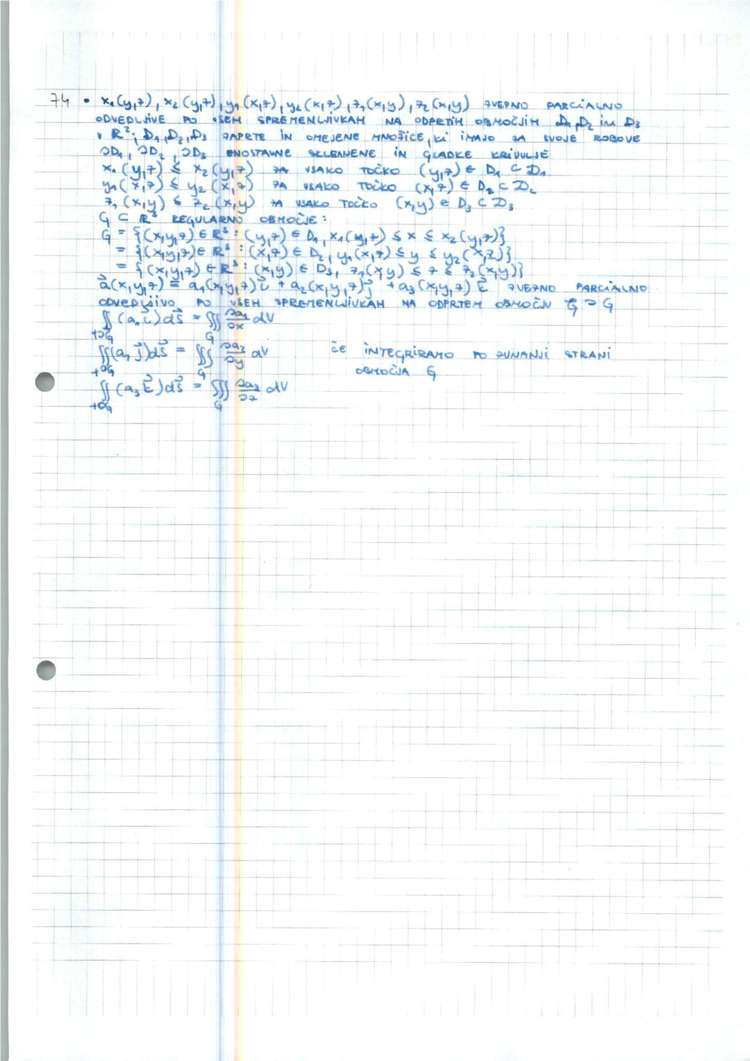 74 • x₁(y,z), x₂(y,z), y₁(x,z), y₂(x,z), z₁(x,y), z₂(x,y) ZVEZNO PARCIALNO
ODVEDLJIVE PO VSEH SPREMENLJIVKAH NA ODPRTIH OBMOČJIH 𝒟₁, 𝒟₂ in 𝒟₃
v ℝ²; D₁, D₂, D₃ ZAPRTE IN OMEJENE MNOŽICE, ki IMAJO ZA SVOJE ROBOVE
∂D₁, ∂D₂, ∂D₃ ENOSTAVNE SKLENJENE IN GLADKE KRIVULJE
x₁(y,z) ≤ x₂(y,z) ZA VSAKO TOČKO (y,z) ∈ D₁ ⊂ 𝒟₁
y₁(x,z) ≤ y₂(x,z) ZA VSAKO TOČKO (x,z) ∈ D₂ ⊂ 𝒟₂
z₁(x,y) ≤ z₂(x,y) ZA VSAKO TOČKO (x,y) ∈ D₃ ⊂ 𝒟₃
G ⊂ ℝ³ REGULARNO OBMOČJE:
G = {(x,y,z) ∈ ℝ³ : (y,z) ∈ D₁, x₁(y,z) ≤ x ≤ x₂(y,z)}
= {(x,y,z) ∈ ℝ³ : (x,z) ∈ D₂, y₁(x,z) ≤ y ≤ y₂(x,z)}
= {(x,y,z) ∈ ℝ³ : (x,y) ∈ D₃, z₁(x,y) ≤ z ≤ z₂(x,y)}
a⃗(x,y,z) = a₁(x,y,z)i⃗ + a₂(x,y,z)j⃗ + a₃(x,y,z)k⃗ ZVEZNO PARCIALNO
ODVEDLJIVO PO VSEH SPREMENLJIVKAH NA ODPRTEM OBMOČJU 𝒢 ⊃ G
∬_{+∂G} (a₁i⃗)dS⃗ = ∭_G ∂a₁/∂x dV
∬_{+∂G} (a₂j⃗)dS⃗ = ∭_G ∂a₂/∂y dV ČE INTEGRIRAMO PO ZUNANJI STRANI
OBMOČJA G
∬_{+∂G} (a₃k⃗)dS⃗ = ∭_G ∂a₃/∂z dV